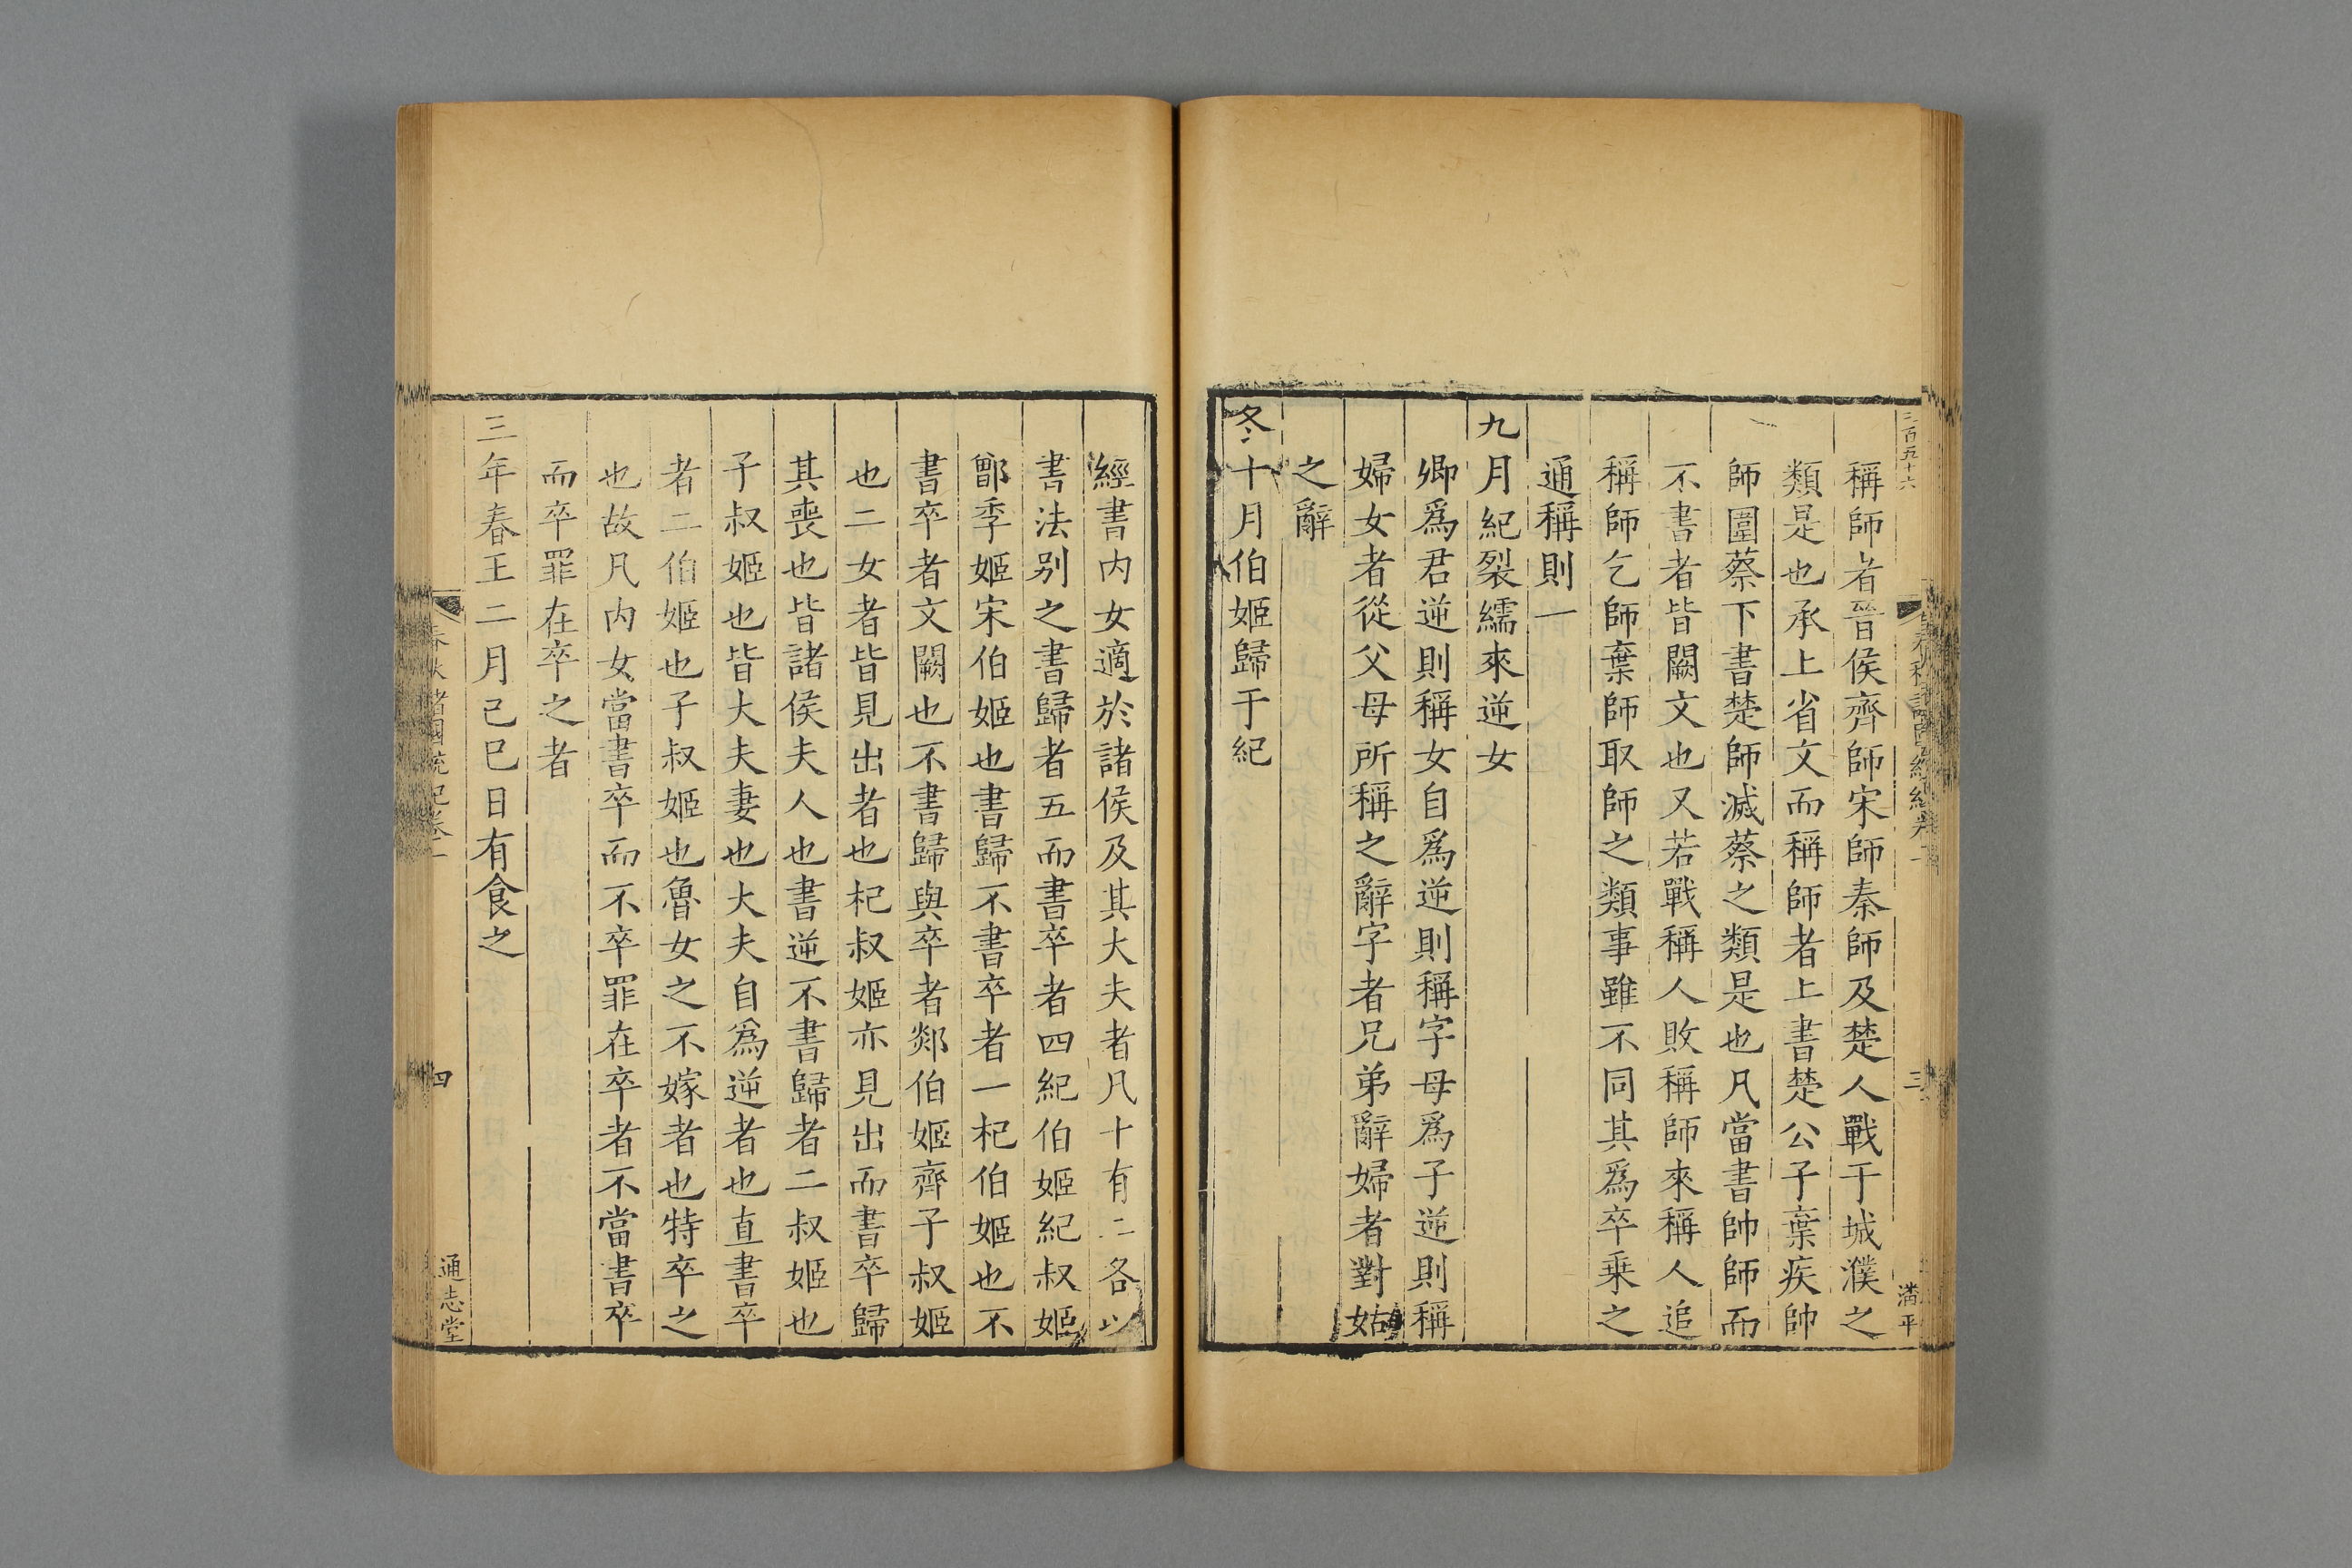 三百五十六
三
滿平
稱師者晉侯齊師宋師秦師及楚人戰于城濮之
類是也承上省文而稱師者上書楚公子棄疾帥
師圍蔡下書楚師滅蔡之類是也凡當書帥師而
不書者皆闕文也又若戰稱人敗稱師來稱人追
稱師乞師棄師取師之類事雖不同其爲卒乗之
通稱則一
九月紀裂繻來逆女
卿爲君逆則稱女自爲逆則稱字母爲子逆則稱
婦女者從父母所稱之辭字者兄弟辭婦者對姑
之辭
冬十月伯姬歸于紀
經書内女適於諸侯及其大夫者凡十有二各以
書法别之書歸者五而書卒者四紀伯姬紀叔姬
鄫季姬宋伯姬也書歸不書卒者一杞伯姬也不
書卒者文闕也不書歸與卒者郯伯姬齊子叔姬
也二女者皆見出者也杞叔姬亦見出而書卒歸
其喪也皆諸侯夫人也書逆不書歸者二叔姬也
子叔姬也皆大夫妻也大夫自爲逆者也直書卒
者二伯姬也子叔姬也魯女之不嫁者也特卒之
也故凡内女當書卒而不卒罪在卒者不當書卒
而卒罪在卒之者
三年春王二月己巳日有食之
春秋諸國統紀卷二
四
通志堂